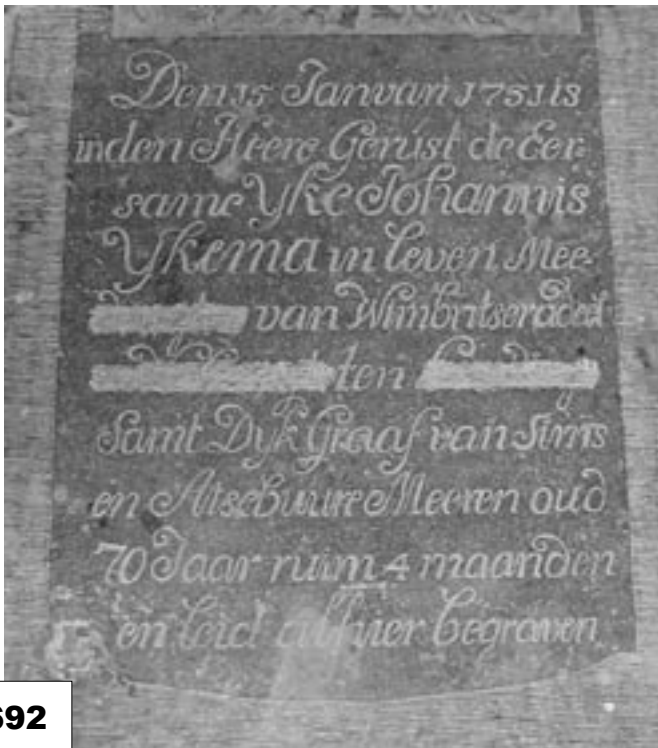 Den 15 Januari 1751 is
in den Heere Gerust de Eer
same Yke Johannis
Ykema in leven Mee
van Wimbritseradeel
ten
Samt Dyk Graaf van Sims
en Atsebuure Meeren oud
70 Jaar ruim 4 maanden
en leid alhier begraven
692